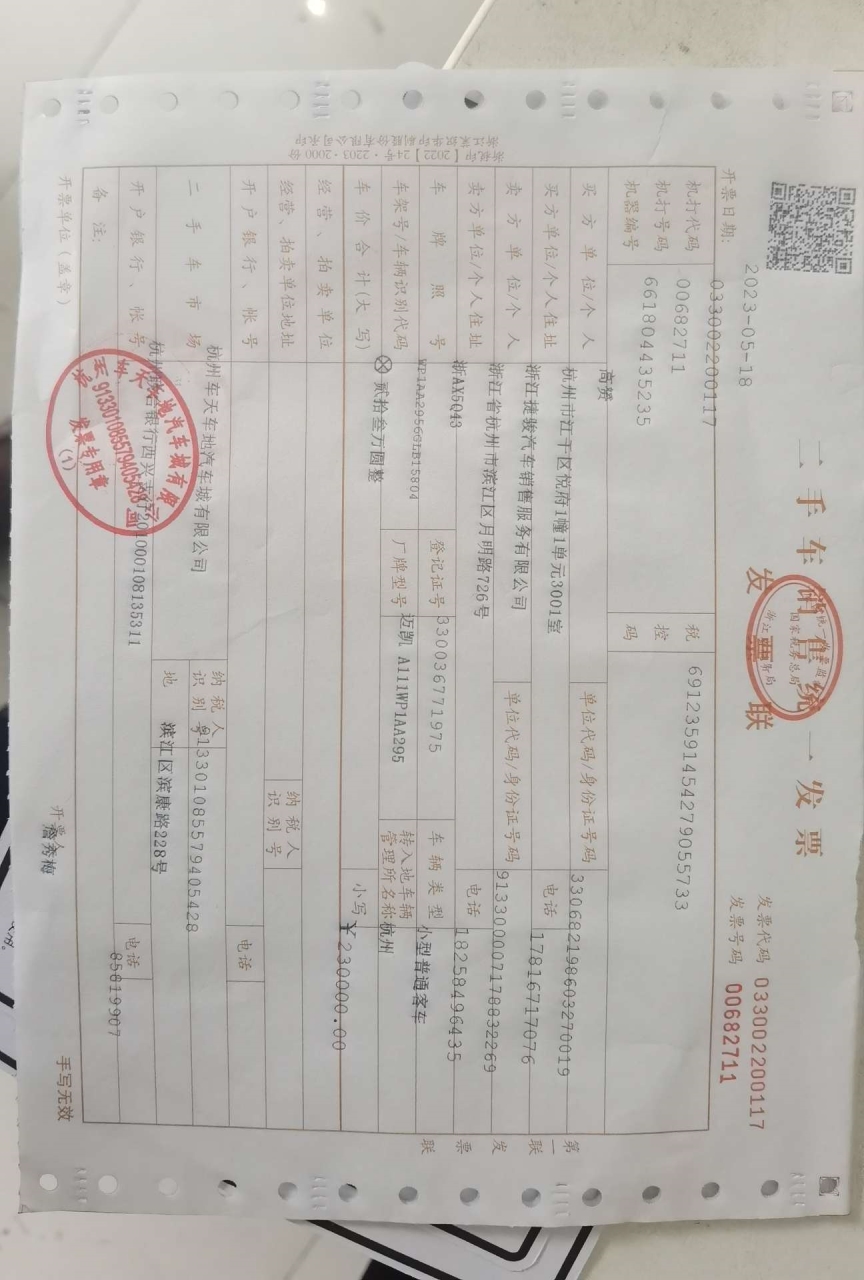 二手车销售统一发票
发票联
发票代码 033002200117
发票号码 00682711
开票日期: 2023-05-18
机打代码 033002200117
机打号码 00682711
机器编号 661804435235
税控码 69123591454279055733
买方单位/个人 高赟 单位代码/身份证号码 330682198603270019
买方单位/个人住址 杭州市江干区悦府1幢1单元3001室 电话 17816717076
卖方单位/个人 浙江捷骏汽车销售服务有限公司 单位代码/身份证号码 913300007178832269
卖方单位/个人住址 浙江省杭州市滨江区月明路726号 电话 18258496435
车牌照号 浙AX5Q43 登记证号 330036771975 车辆类型 小型普通客车
车架号/车辆识别代码 WP1AA2956GLB15804 厂牌型号 迈凯 A111WP1AA295 转入地车辆管理所名称 杭州
车价合计(大写) ⊗ 贰拾叁万圆整 小写 ¥ 230000.00
经营、拍卖单位
经营、拍卖单位地址 纳税人识别号
开户银行、帐号 电话
二手车市场 杭州车天车地汽车城有限公司 纳税人识别号 913301085579405428
地 滨江区滨康路228号
开户银行、帐号 201000108135311 电话 85619907
备注:
开票单位(盖章) 开票人 詹秀梅 手写无效
第一联 发票联
国家税务总局
浙江
913301085579405428
发票专用章
(1)
浙税印【2022】24号·2203·2000份